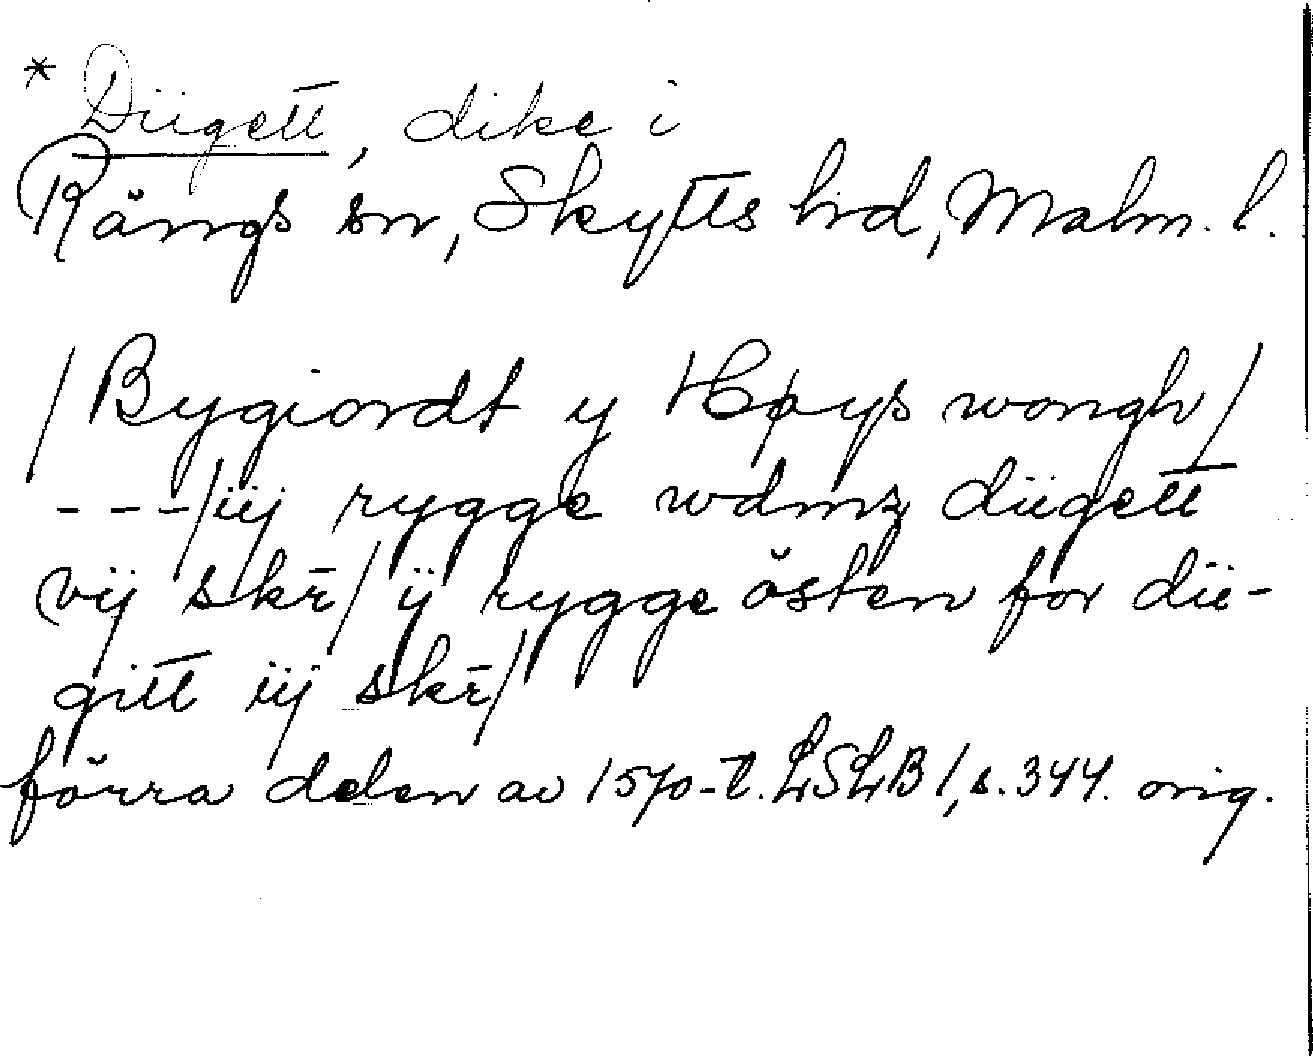 * Diigett, dike i
Rängs sn, Skytts hd, Malm. l.
/ Bygiordt y Høys wongh /
- - - / iij rygge wdmz diigett
vij skr̄ / ij rygge östen for dii-
gitt iij skr̄ /
förra delen av 1570-t. LSLB 1, s. 344. orig.